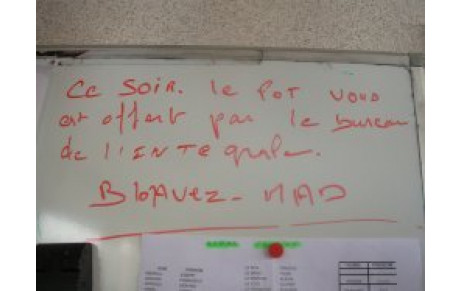 Ce SOIR. le POT vous
est offert par le bureau
de l'INTEGRALE.
BloAVEZ - MAD